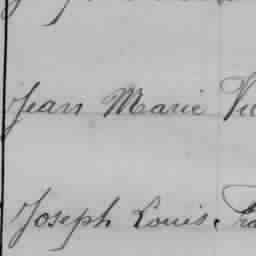 Jean Marie
Joseph Louis